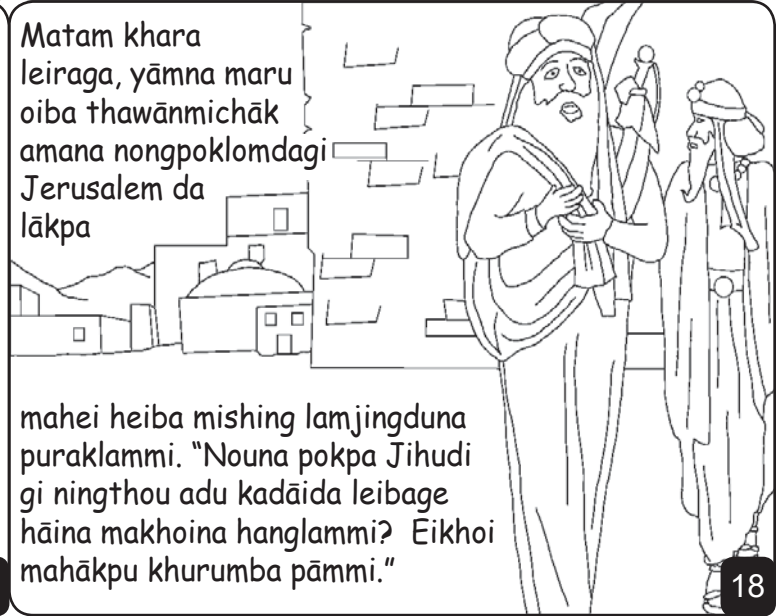 Matam khara
leiraga, yāmna maru
oiba thawānmichāk
amana nongpoklomdagi
Jerusalem da
lākpa
mahei heiba mishing lamjingduna
puraklammi. “Nouna pokpa Jihudi
gi ningthou adu kadāida leibage
hāina makhoina hanglammi?  Eikhoi
mahākpu khurumba pāmmi.”
18